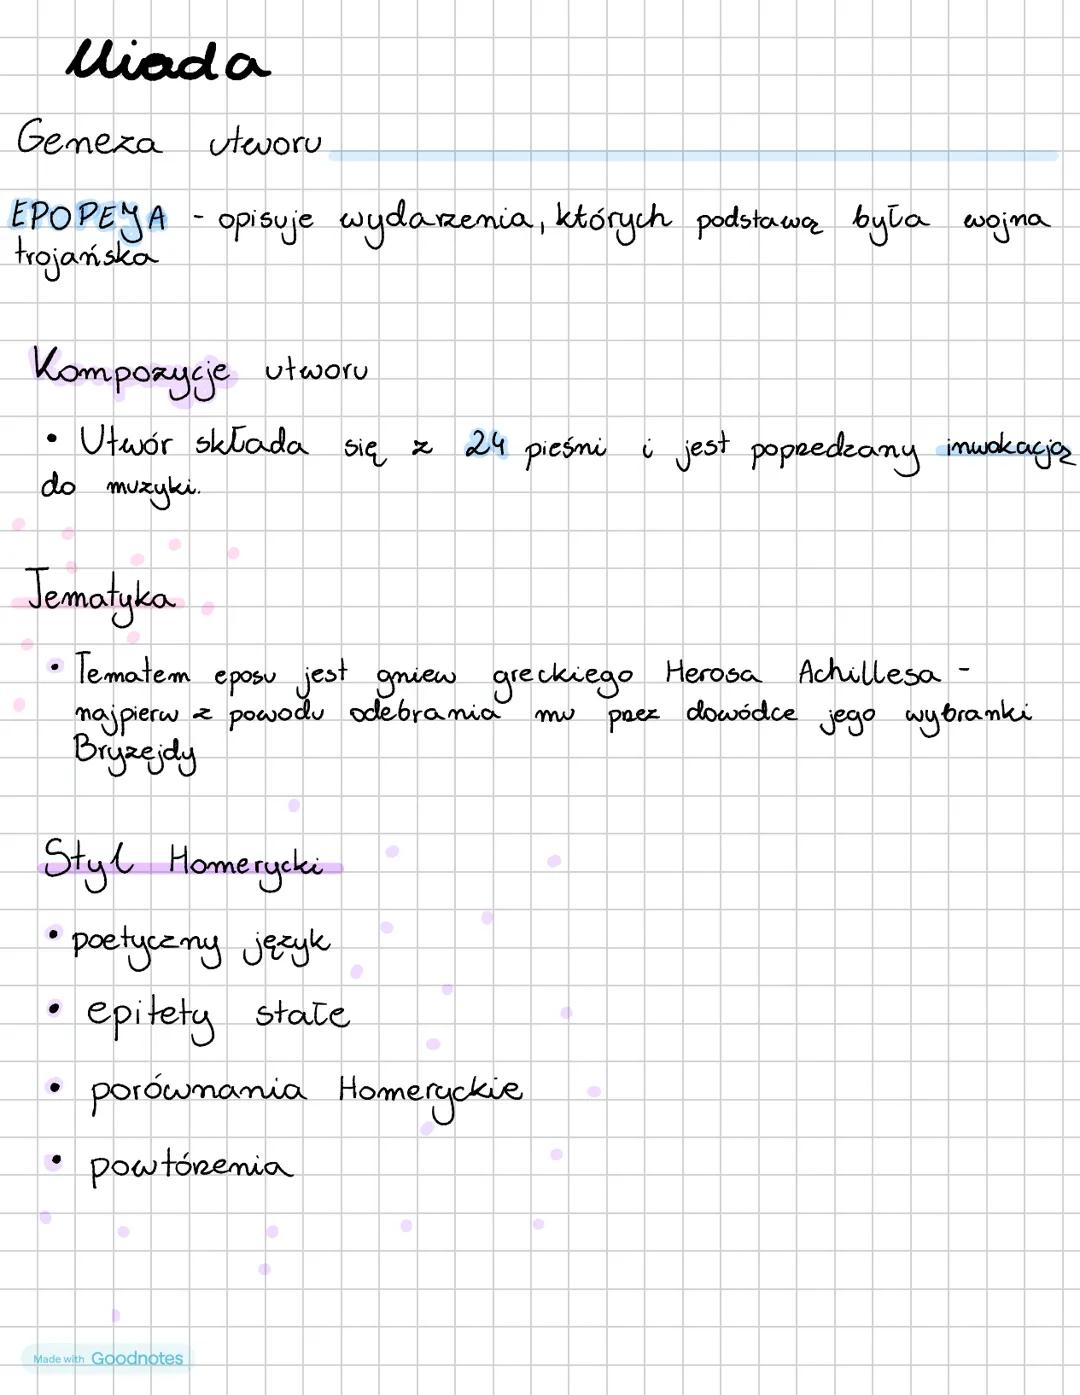 Iliada
Geneza utworu
EPOPEJA - opisuje wydarzenia, których podstawą była wojna
trojańska
Kompozycje utworu
• Utwór składa się z 24 pieśni i jest poprzedzany inwokacją
do muzyki.
Tematyka
• Tematem eposu jest gniew greckiego Herosa Achillesa -
najpierw z powodu odebrania mu przez dowódce jego wybranki
Bryzejdy
Styl Homerycki
• poetyczny język
• epitety stałe
• porównania Homeryckie
• powtórzenia
Made with Goodnotes